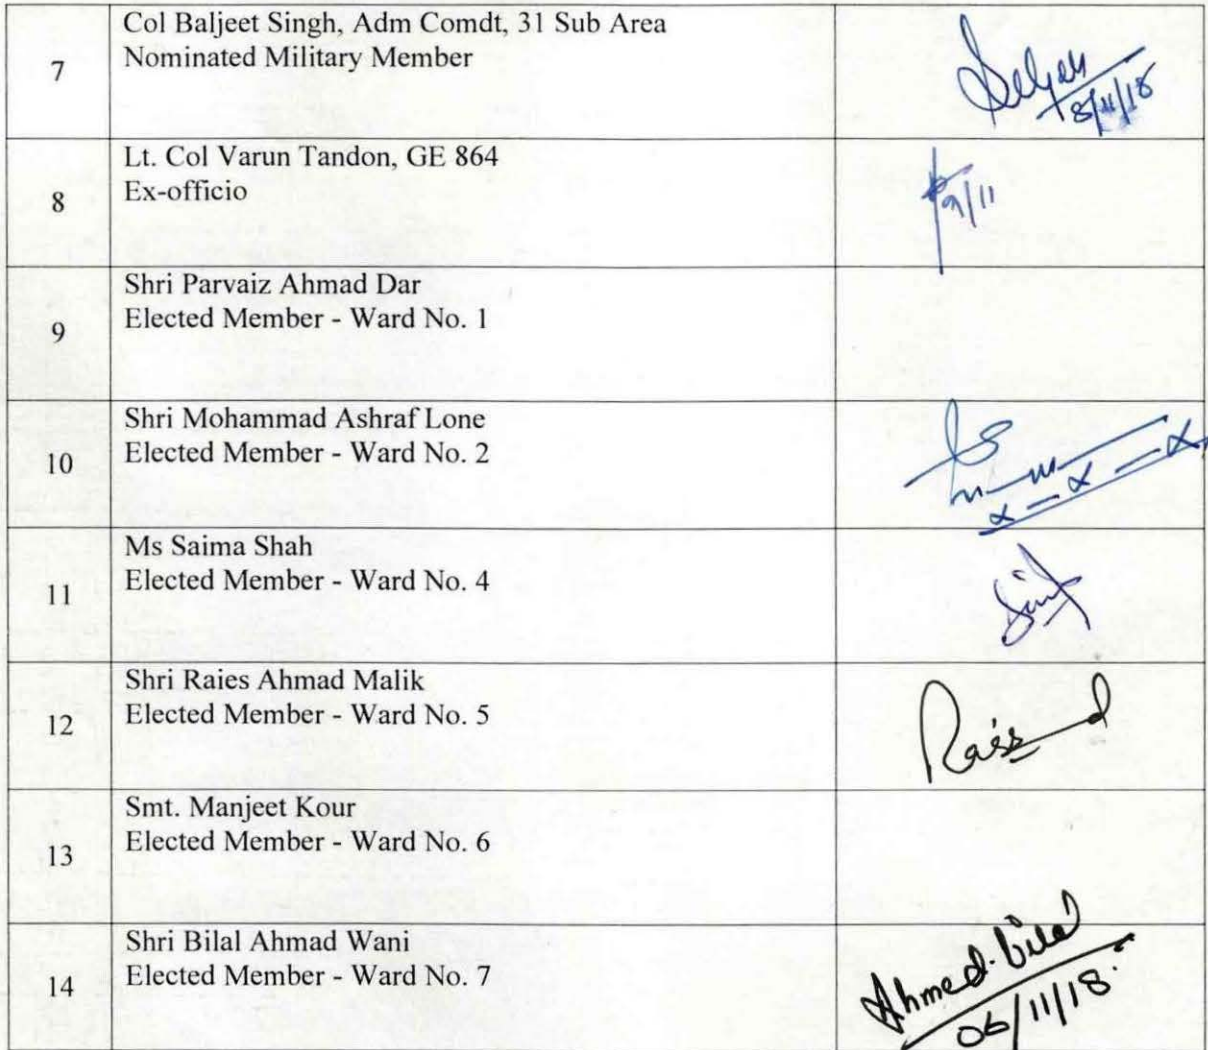 7
Col Baljeet Singh, Adm Comdt, 31 Sub Area
Nominated Military Member
8/11/18
8
Lt. Col Varun Tandon, GE 864
Ex-officio
9/11
9
Shri Parvaiz Ahmad Dar
Elected Member - Ward No. 1
10
Shri Mohammad Ashraf Lone
Elected Member - Ward No. 2
11
Ms Saima Shah
Elected Member - Ward No. 4
12
Shri Raies Ahmad Malik
Elected Member - Ward No. 5
13
Smt. Manjeet Kour
Elected Member - Ward No. 6
14
Shri Bilal Ahmad Wani
Elected Member - Ward No. 7
Ahmed Bilal
06/11/18